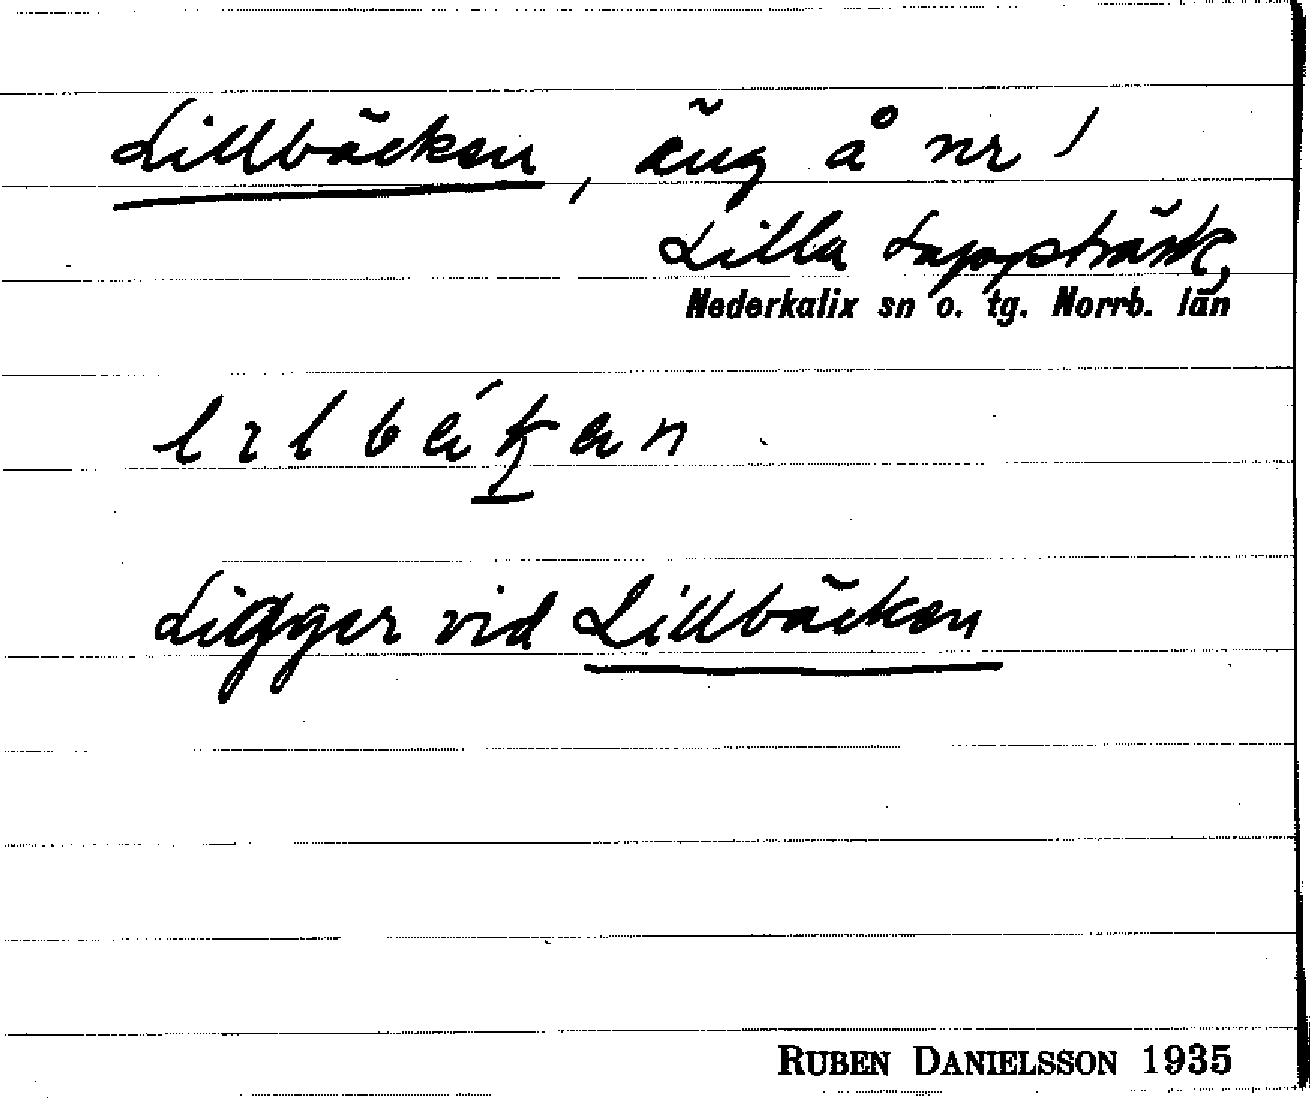 Lillbäcken, äng å nr 1
Lilla Lappträsk,
Nederkalix sn o. tg. Norrb. län
Ligger vid Lillbäcken
RUBEN DANIELSSON 1935